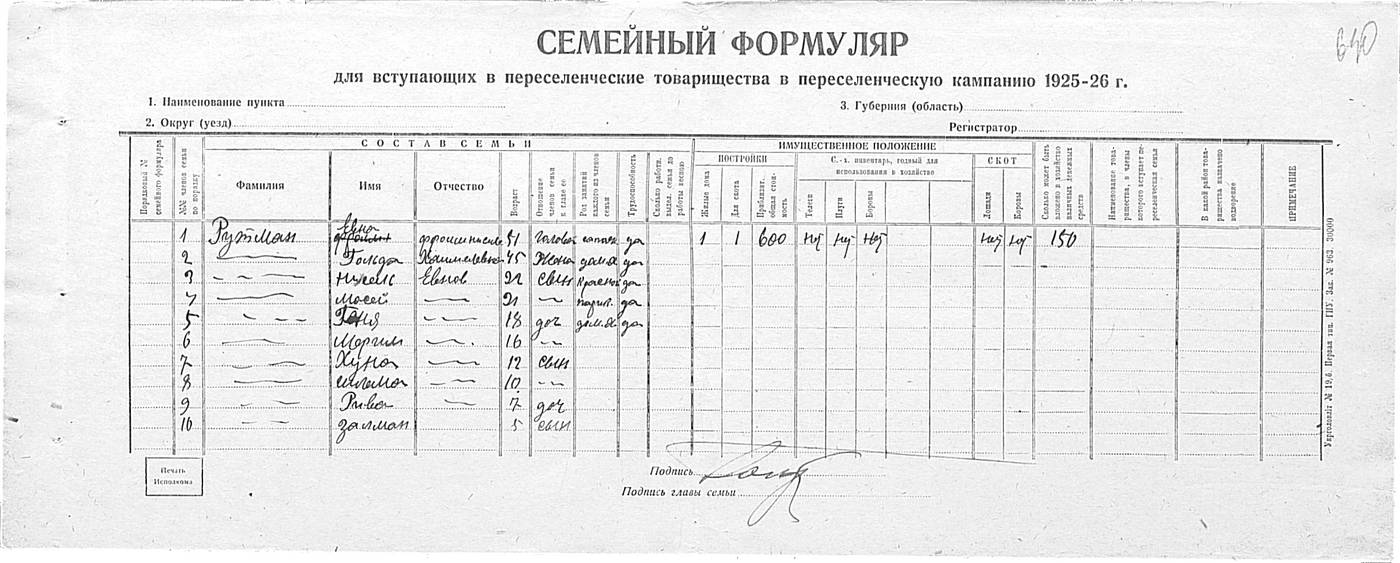 640
СЕМЕЙНЫЙ ФОРМУЛЯР
для вступающих в переселенческие товарищества в переселенческую кампанию 1925-26 г.
1. Наименование пункта
3. Губерния (область)
2. Округ (уезд)
Регистратор
Порядковый № семейного формуляра
№№ членов семьи по порядку
СОСТАВ СЕМЬИ
Фамилия
Имя
Отчество
Возраст
Отношение членов семьи к главе ее
Род занятий каждого из членов семьи
Трудоспособность
Сколько работн. выдел. семья до работы весною
ИМУЩЕСТВЕННОЕ ПОЛОЖЕНИЕ
ПОСТРОЙКИ
Жилые дома
Для скота
Приблизит. общая стоимость
С.-х. инвентарь, годный для использования в хозяйстве
Телеги
Плуги
Бороны
СКОТ
Лошади
Коровы
Сколько может быть вложено в хозяйство наличных денежных средств
Наименование товарищества, в члены которого вступает переселенческая семья
В какой район товарищества назначено водворение
ПРИМЕЧАНИЕ
1 Рутман Евна 51 голова да 1 1 600 нет нет нет нет нет 150
2 — Гольда 45 жена дом.х да
3 — Евнов 22 сын да
4 — Мосей — 21 — да
5 — Геня — 18 доч дом.х да
6 — — 16 —
7 — Хуна — 12 сын
8 — — 10 —
9 — Рива — 7 доч
10 — Залман 5 сын
Печать Исполкома
Подпись
Подпись главы семьи
Укрголовліт № 19,б. Первая тип. ГПУ. Зак. № 963. 30000